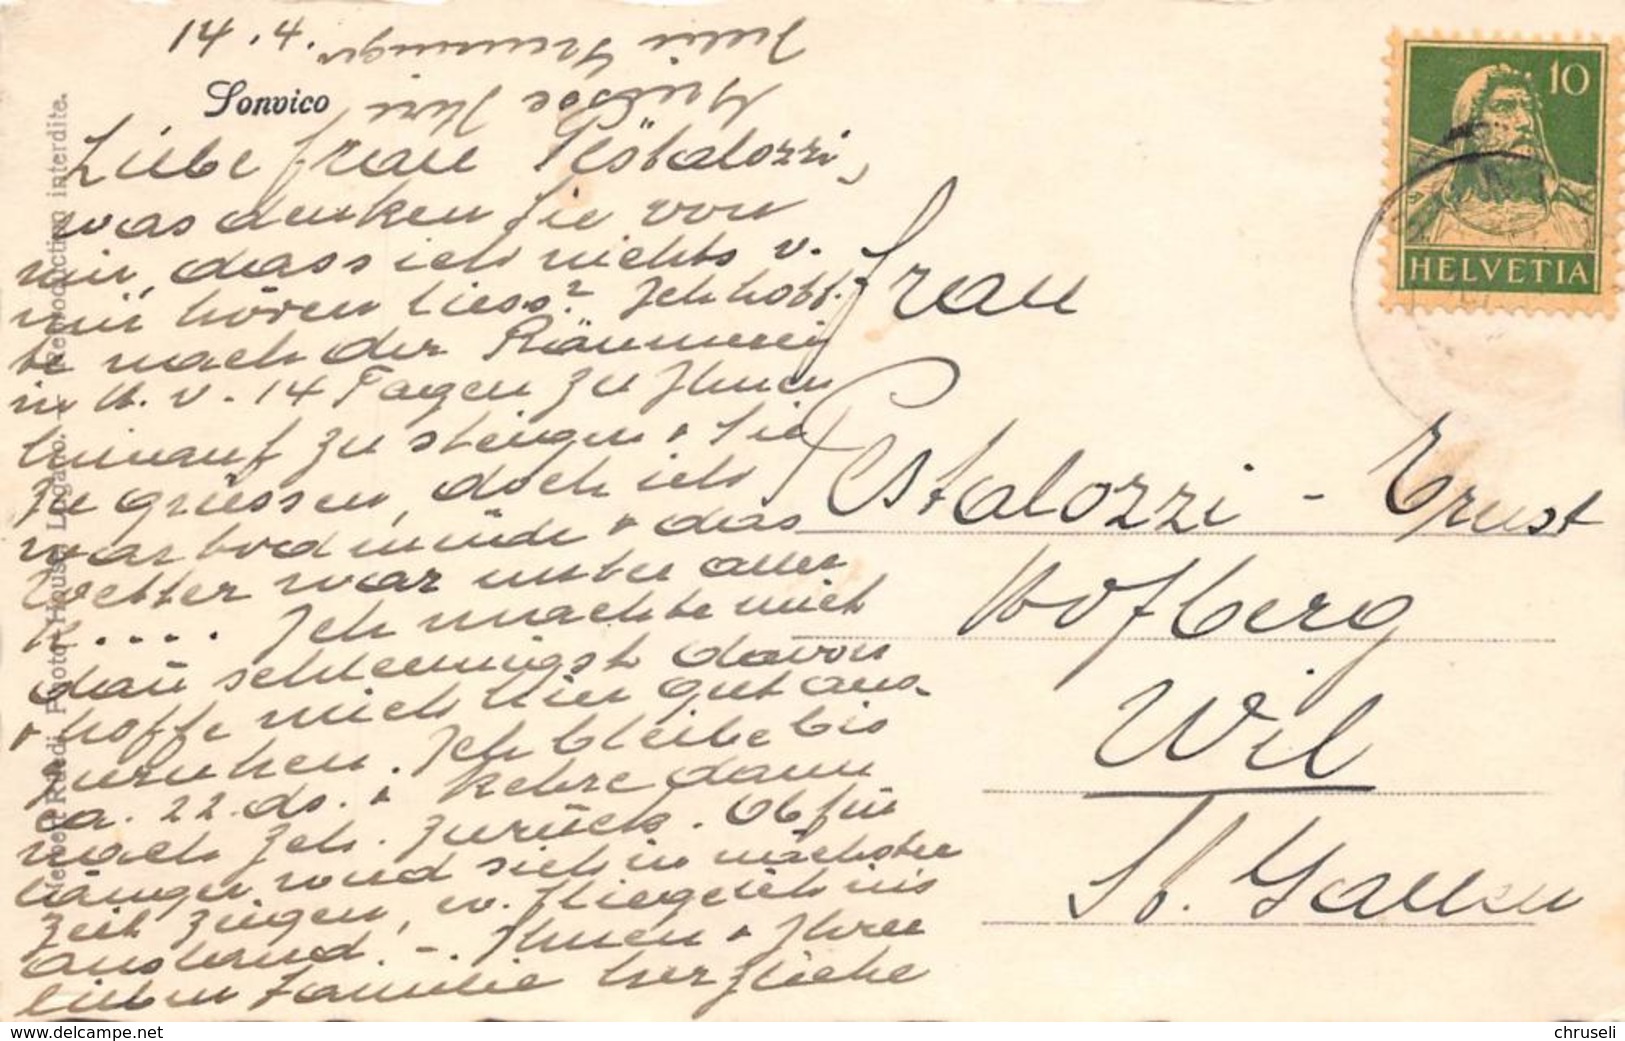 14.4.
Sonvico
Liebe Frau Pestalozzi,
was denken Sie von
mir, dass ich nichts v.
mir hören liess? Ich hoff-
te nach der Räumerei
in U. v. 14 Tagen zu Ihnen
hinauf zu steigen & Sie
zu grüssen, doch ich
war todmüde & das
Wetter war unter aller
K..... Ich machte mich
dann schleunigst davon
& hoffe mich hier gut aus-
zuruhen. Ich bleibe bis
ca. 22. ds. & kehre dann
nach Zch. zurück. Ob für
länger wird sich in nächster
Zeit zeigen, ev. fliege ich ins
Ausland. -. Ihnen & Ihrer
lieben Familie herzliche
Grüsse Ihre
Frau
Pestalozzi - Ernst
Hofberg
Wil
St. Gallen
10
HELVETIA
Photo-House, Lugano. - Reproduction interdite.
www.delcampe.net
chruseli